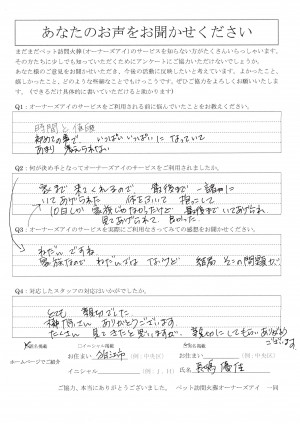 あなたのお声をお聞かせください
まだまだペット訪問火葬(オーナーズアイ)のサービスを知らない方がたくさんいらっしゃいます。
その方たちに少しでも知っていただくためにアンケートにご協力いただけないでしょうか。
あなた様のご意見をお聞かせいただき、今後の活動に反映したいと考えています。よかったこと、
嬉しかったこと、どのような些細なことでもけっこうです。ぜひご協力をよろしくお願いいたします。
(できるだけ具体的に書いていただけると助かります)
Q1:オーナーズアイのサービスをご利用される前に悩んでいたことをお教えください。
時間と値段
初めての事で いっぱいいっぱいになっていて
あまり 考えられない
Q2:何が決め手となってオーナーズアイのサービスをご利用されましたか。
家まで 来てくれるので 最後まで一緒に
いてあげられた
10日しか 家族になれなかったけど 最後まで いてあげられ
見てあげられて 良かった
Q3:オーナーズアイのサービスを実際にご利用なさってみての感想をお聞かせください。
わだい ですね
家族なので わだいでは ないけど 結局 そこの問題が
Q4:対応したスタッフの対応はいかがでしたか。
とても 親切でした
ありがとうございます
たくさん 見てきたと思いますが 親切にしてもらいありがとう
ございます
ホームページでご紹介
お住まい
(例:中央区)
イニシャル
(例:J.H)
お住まい
(例:中央区)
氏名
ご協力、本当にありがとうございました。 ペット訪問火葬オーナーズアイ 一同